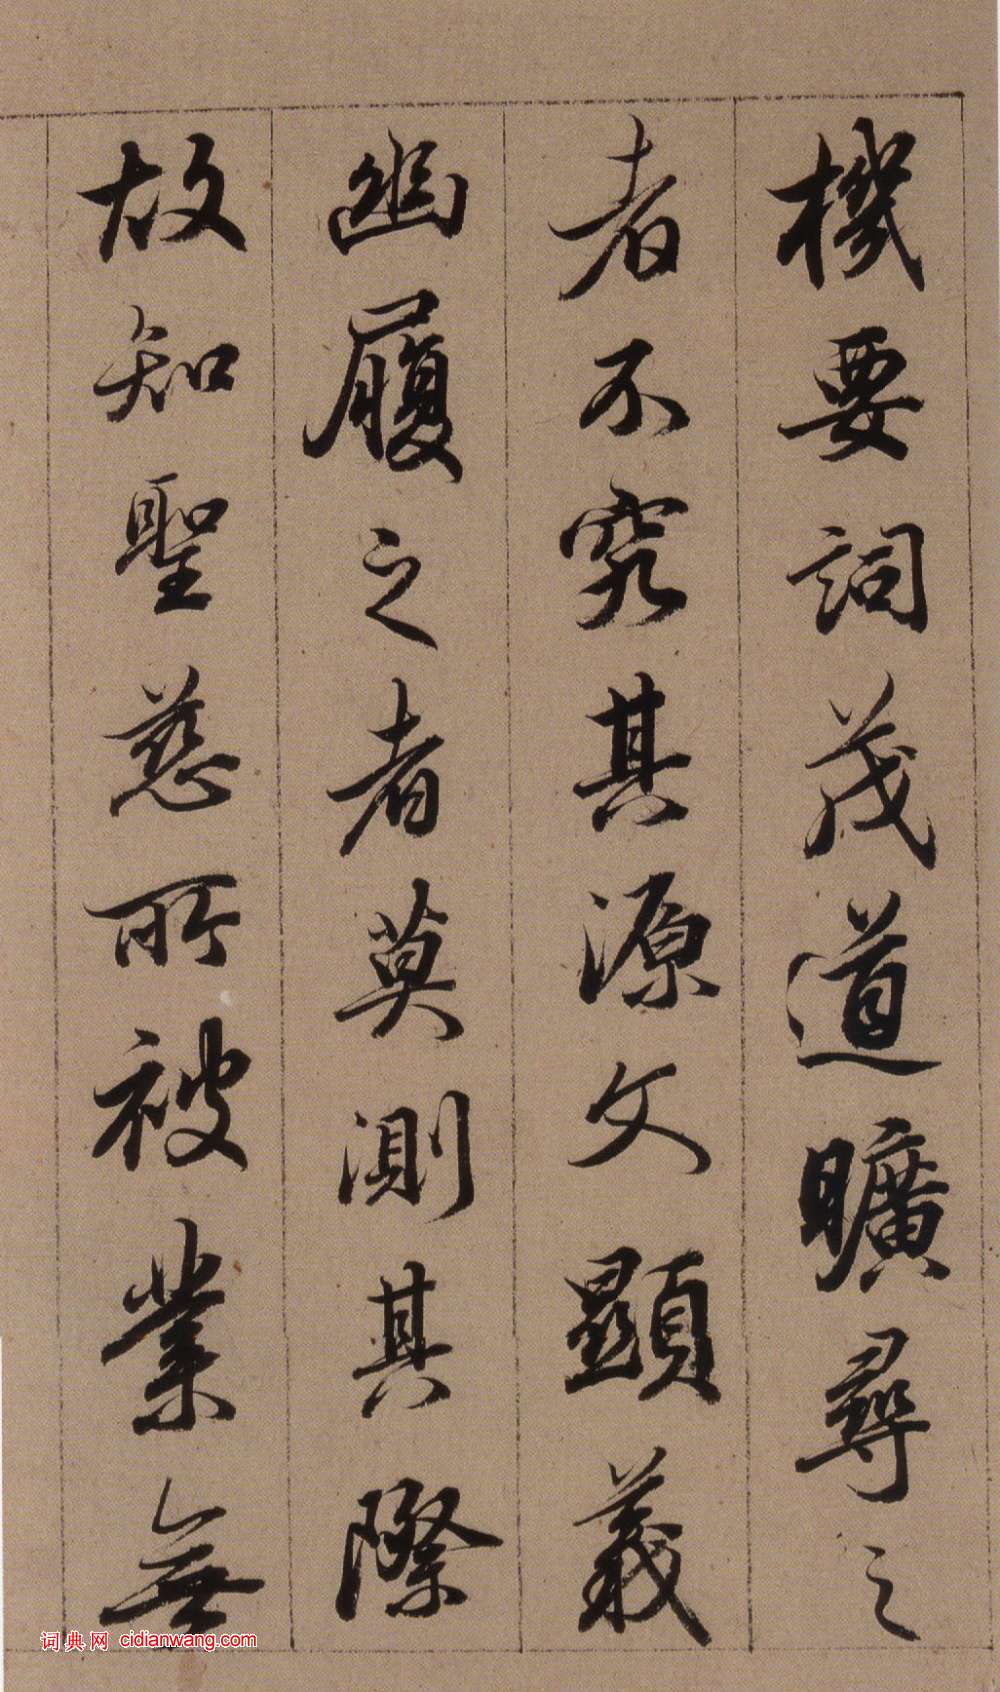 機要詞茂道曠尋之
者不究其源文顯義
幽履之者莫測其際
故知聖慈所被業無
词典网 cidianwang.com